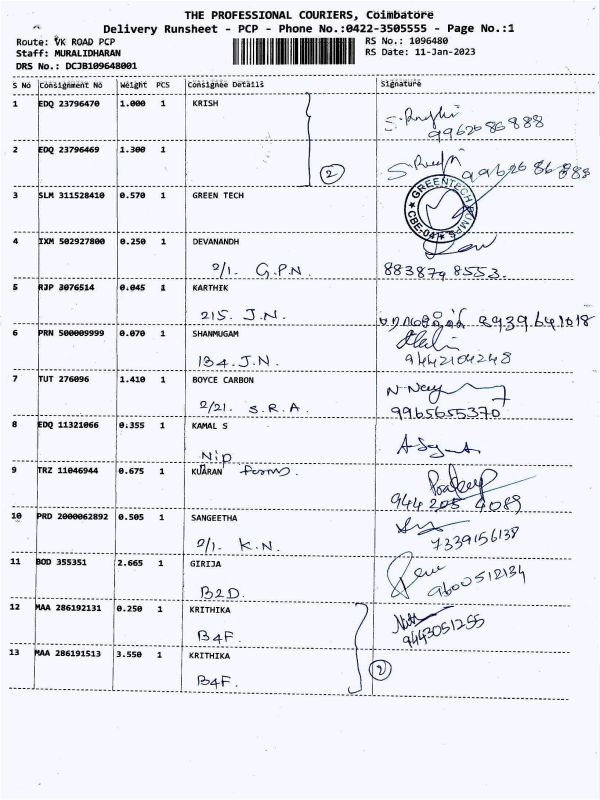 THE PROFESSIONAL COURIERS, Coimbatore
Delivery Runsheet - PCP - Phone No.:0422-3505555 - Page No.:1
Route: VK ROAD PCP
RS No.: 1096480
Staff: MURALIDHARAN
RS Date: 11-Jan-2023
DRS No.: DCJB109648001
S No Consignment No Weight PCS Consignee Details Signature
1 EDQ 23796470 1.000 1 KRISH
9962686888
2 EDQ 23796469 1.300 1
2
3 SLM 311528410 0.570 1 GREEN TECH
GREENTECH PUMPS
CBE-041
4 IXM 502927800 0.250 1 DEVANANDH
2/1. G.P.N. 8838798553.
5 RJP 3076514 0.045 1 KARTHIK
215. J.N. 8939641018
6 PRN 500009999 0.070 1 SHANMUGAM
134. J.N. 9442104248
7 TUT 276096 1.410 1 BOYCE CARBON
2/21. S.R.A. 9965655370
8 EDQ 11321066 0.355 1 KAMAL S
Nip
9 TRZ 11046944 0.675 1 KUARAN
944 205 4089
10 PRD 2000062892 0.505 1 SANGEETHA
2/1. K.N. 7339156138
11 BOD 355351 2.665 1 GIRIJA
B2D. 9600512134
12 MAA 286192131 0.250 1 KRITHIKA
B4F. 9443051255
13 MAA 286191513 3.550 1 KRITHIKA
B4F. 2